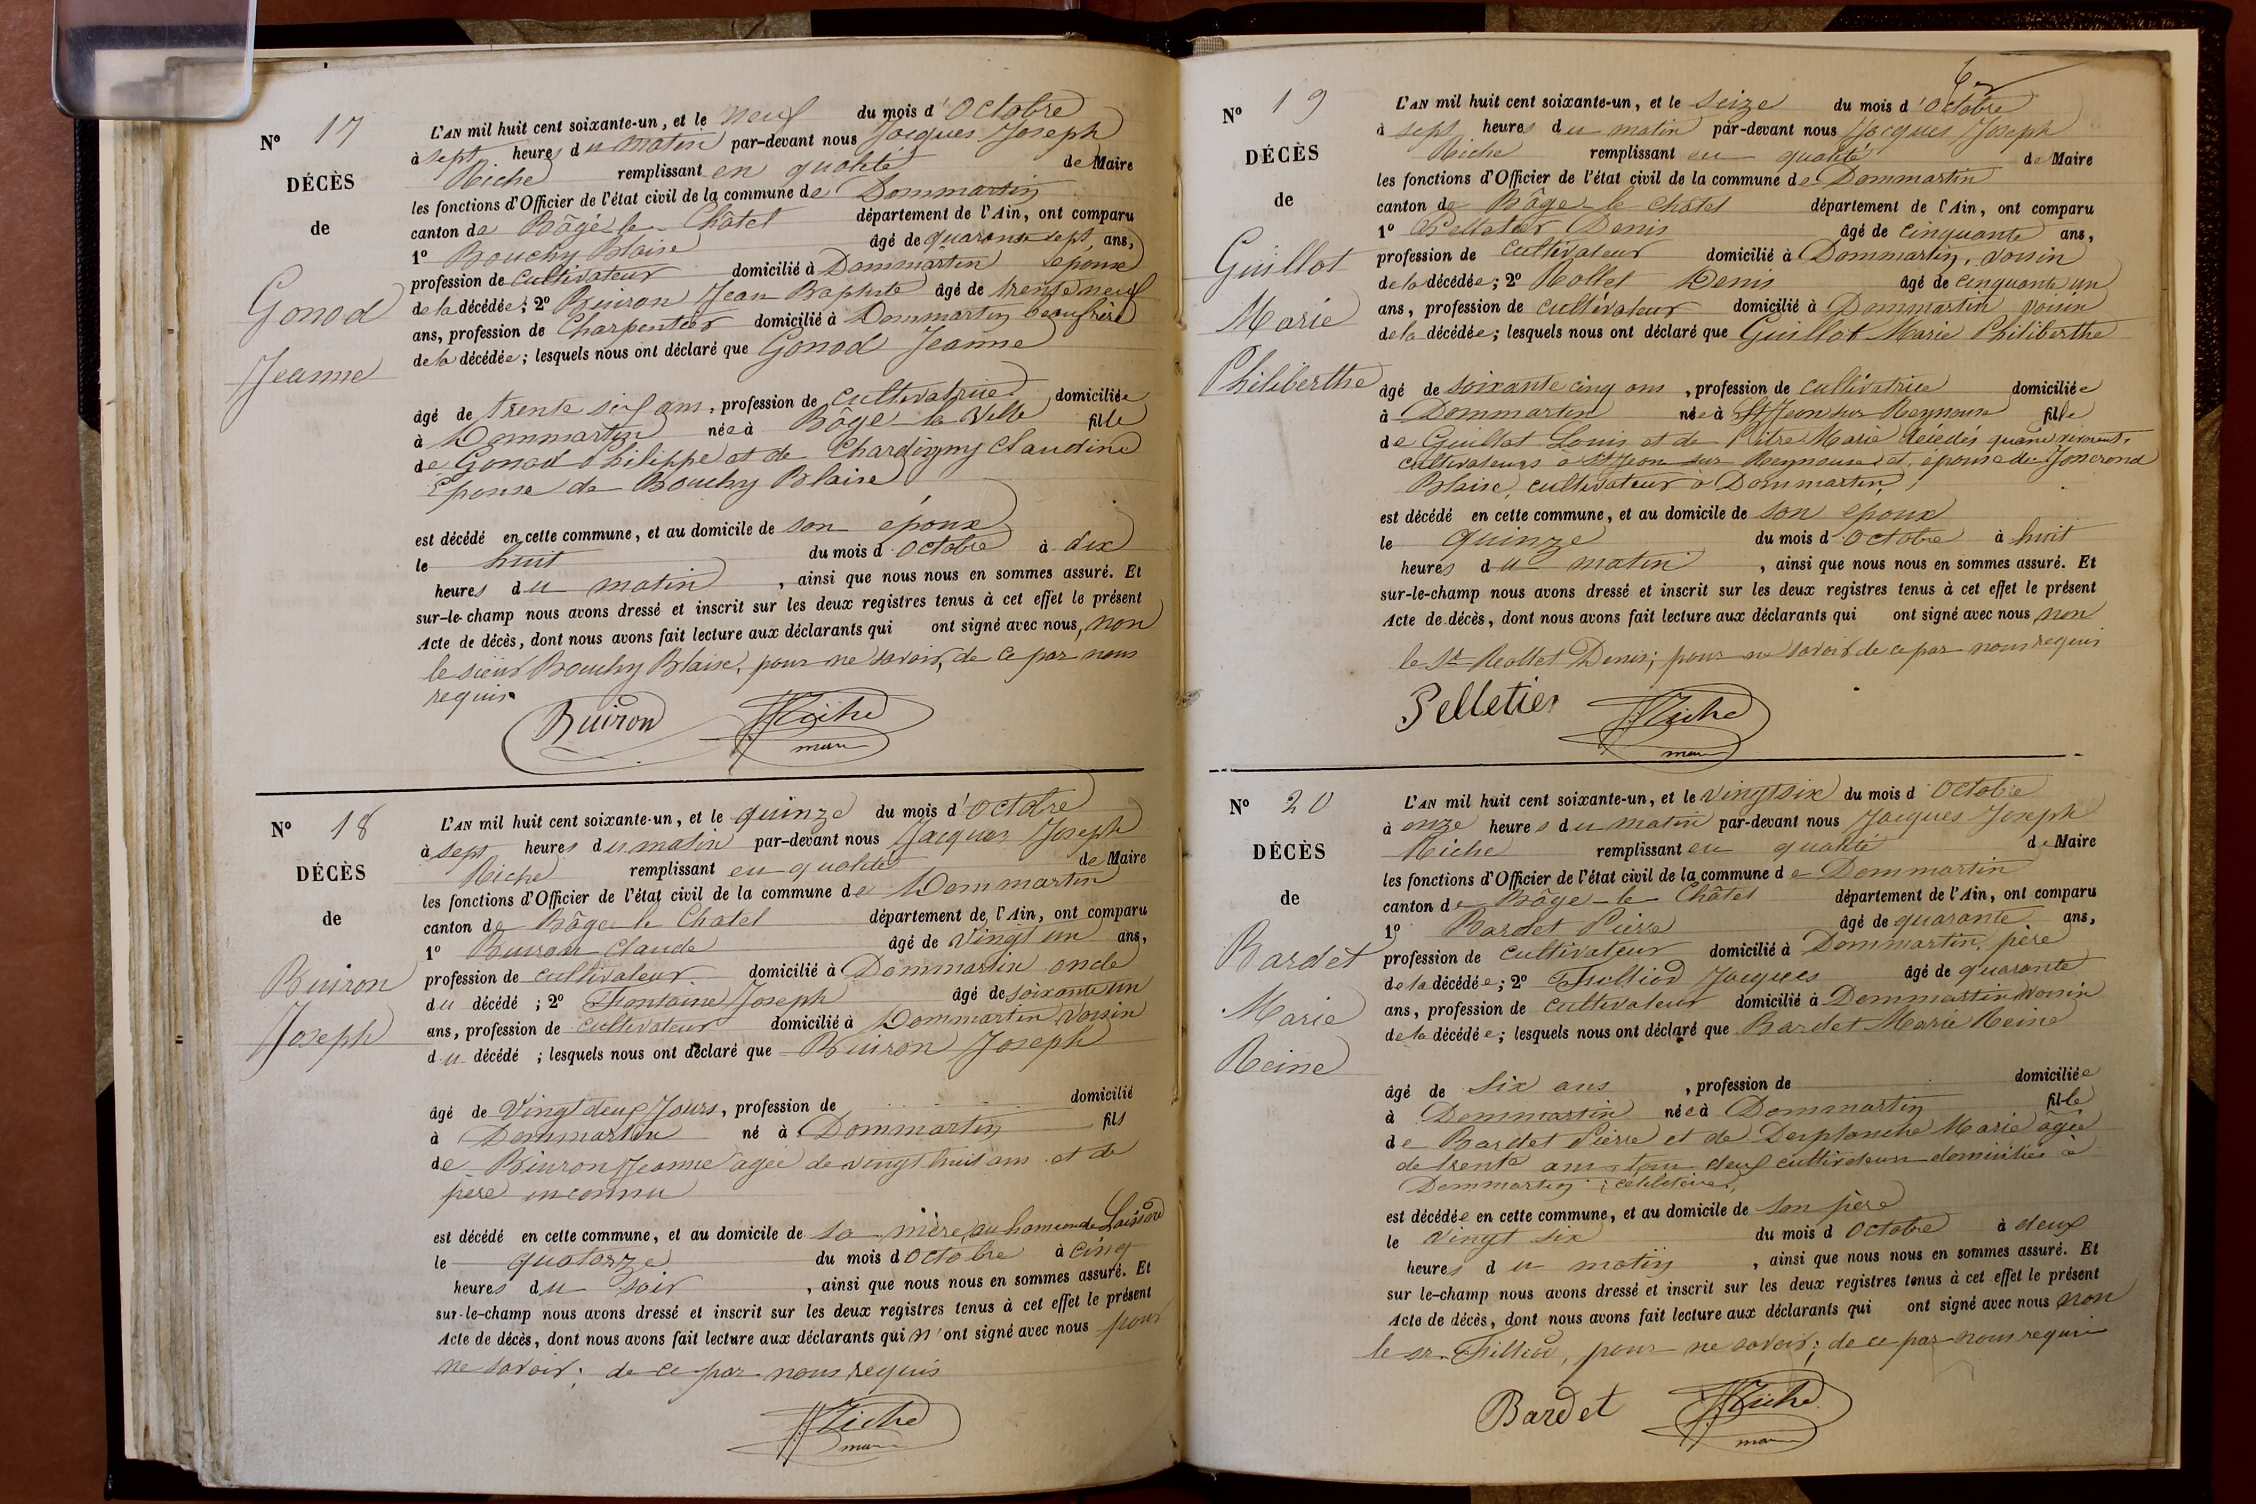 N° 17
DÉCÈS
de
Gonod
Jeanne
L'AN mil huit cent soixante-un, et le neuf du mois d'Octobre
à sept heures du matin par-devant nous Jacques Joseph
Riche remplissant en qualité de Maire
les fonctions d'Officier de l'état civil de la commune de Dommartin
canton de Bâgé-le-Châtel département de l'Ain, ont comparu
1° Bouchy Blaise âgé de quarante sept ans,
profession de cultivateur domicilié à Dommartin époux
de la décédée; 2° Buiron Jean Baptiste âgé de trente neuf
ans, profession de Charpentier domicilié à Dommartin beaufrère
de la décédée; lesquels nous ont déclaré que Gonod Jeanne
âgé de trente six ans, profession de cultivatrice domiciliée
à Dommartin née à Bâgé-la-Ville fille
de Gonod Philippe et de Chardigny Claudine
Epouse de Bouchy Blaise
est décédé en cette commune, et au domicile de son époux
le huit du mois d'Octobre à dix
heures du matin, ainsi que nous nous en sommes assuré. Et
sur-le-champ nous avons dressé et inscrit sur les deux registres tenus à cet effet le présent
Acte de décès, dont nous avons fait lecture aux déclarants qui ont signé avec nous, non
le sieur Bouchy Blaise, pour ne savoir, de ce par nous
requis.
Buiron JJRiche
maire
N° 18
DÉCÈS
de
Buiron
Joseph
L'AN mil huit cent soixante-un, et le quinze du mois d'Octobre
à sept heures du matin par-devant nous Jacques Joseph
Riche remplissant en qualité de Maire
les fonctions d'Officier de l'état civil de la commune de Dommartin
canton de Bâgé-le-Chatel département de l'Ain, ont comparu
1° Buiron Claude âgé de vingt un ans,
profession de cultivateur domicilié à Dommartin oncle
du décédé ; 2° Fontaine Joseph âgé de soixante un
ans, profession de cultivateur domicilié à Dommartin voisin
du décédé ; lesquels nous ont déclaré que Buiron Joseph
âgé de vingt deux jours, profession de domicilié
à Dommartin né à Dommartin fils
de Buiron Jeanne agée de vingt huit ans et de
père inconnu
est décédé en cette commune, et au domicile de sa mère, au hameau de
le quatorze du mois d Octobre à cinq
heures du soir, ainsi que nous nous en sommes assuré. Et
sur-le-champ nous avons dressé et inscrit sur les deux registres tenus à cet effet le présent
Acte de décès, dont nous avons fait lecture aux déclarants qui n'ont signé avec nous pour
ne savoir; de ce par nous requis
JJRiche
maire
N° 19
DÉCÈS
de
Guillot
Marie
Philiberthe
L'AN mil huit cent soixante-un, et le seize du mois d'Octobre
à sept heures du matin par-devant nous Jacques Joseph
Riche remplissant en qualité de Maire
les fonctions d'Officier de l'état civil de la commune de Dommartin
canton de Bâgé-le-Châtel département de l'Ain, ont comparu
1° Pelletier Denis âgé de cinquante ans,
profession de cultivateur domicilié à Dommartin, voisin
de la décédée; 2° Rollet Denis âgé de cinquante un
ans, profession de cultivateur domicilié à Dommartin voisin
de la décédée; lesquels nous ont déclaré que Guillot Marie Philiberthe
âgé de soixante cinq ans, profession de cultivatrice domiciliée
à Dommartin née à St Jean sur Reyssouse fille
de Guillot Louis et de Pitre Marie décédés quand vivaient
cultivateurs à St Jean sur Reyssouse et épouse de
Blaise, cultivateur à Dommartin,
est décédé en cette commune, et au domicile de son époux
le quinze du mois d'Octobre à huit
heures du matin, ainsi que nous nous en sommes assuré. Et
sur-le-champ nous avons dressé et inscrit sur les deux registres tenus à cet effet le présent
Acte de décès, dont nous avons fait lecture aux déclarants qui ont signé avec nous non
le Sr Rollet Denis; pour ne savoir de ce par nous requis
Pelletier JJRiche
maire
N° 20
DÉCÈS
de
Bardet
Marie
Reine
L'AN mil huit cent soixante-un, et le vingt six du mois d Octobre
à onze heures du matin par-devant nous Jacques Joseph
Riche remplissant en qualité de Maire
les fonctions d'Officier de l'état civil de la commune de Dommartin
canton de Bâgé-le-Châtel département de l'Ain, ont comparu
1° Bardet Pierre âgé de quarante ans,
profession de cultivateur domicilié à Dommartin, père
de la décédée; 2° Jacques âgé de quarante
ans, profession de cultivateur domicilié à Dommartin voisin
de la décédée; lesquels nous ont déclaré que Bardet Marie Reine
âgé de Six ans, profession de domiciliée
à Dommartin née à Dommartin fille
de Bardet Pierre et de Desplanche Marie âgée
de trente ans tous deux cultivateurs domiciliés à
Dommartin; célibataire,
est décédée en cette commune, et au domicile de son père
le vingt six du mois d Octobre à deux
heures du matin, ainsi que nous nous en sommes assuré. Et
sur le-champ nous avons dressé et inscrit sur les deux registres tenus à cet effet le présent
Acte de décès, dont nous avons fait lecture aux déclarants qui ont signé avec nous non
le sr , pour ne savoir; de ce par nous requis
Bardet JJRiche
maire